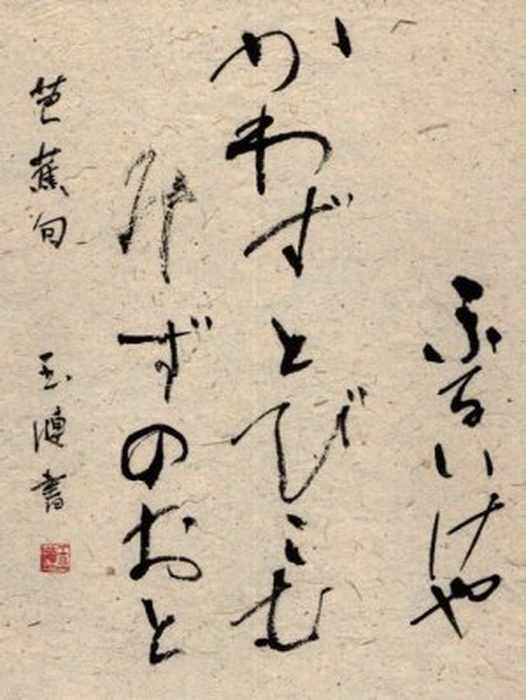 ふるいけや
かわずとびこむ
みずのおと
芭蕉句 玉優書